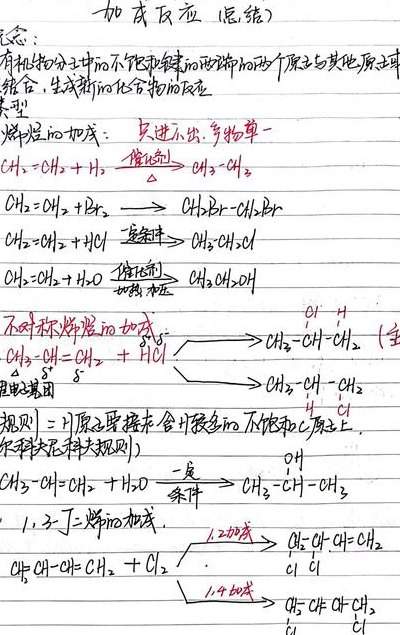 加成反应(总结)
概念:
有机物分子中的不饱和键的两端的两个原子与其他原子或
结合,生成新的化合物的反应
类型
烯烃的加成: 只进不出,产物单一
CH₂=CH₂ + H₂ 催化剂 △ → CH₃-CH₃
CH₂=CH₂ + Br₂ → CH₂Br-CH₂Br
CH₂=CH₂ + HCl 一定条件 → CH₃-CH₂Cl
CH₂=CH₂ + H₂O 催化剂 加热 加压 → CH₃CH₂OH
不对称烯烃的加成
Cl H
CH₃-CH=CH₂ + HCl → CH₃-CH-CH₂ (主
δ⁺ δ⁻ δ⁺ δ⁻
→ CH₃-CH-CH₂
推电子基团
H Cl
规则 = H原子要接在含H较多的不饱和C原子上.
尔科夫尼科夫规则)
OH
CH₃-CH=CH₂ + H₂O 一定条件 → CH₃-CH-CH₃
1,3-丁二烯的加成.
1,2加成 → CH₂-CH-CH=CH₂
Cl Cl
CH₂CH-CH=CH₂ + Cl₂
1,4加成 → CH₂-CH CH-CH₂
Cl Cl